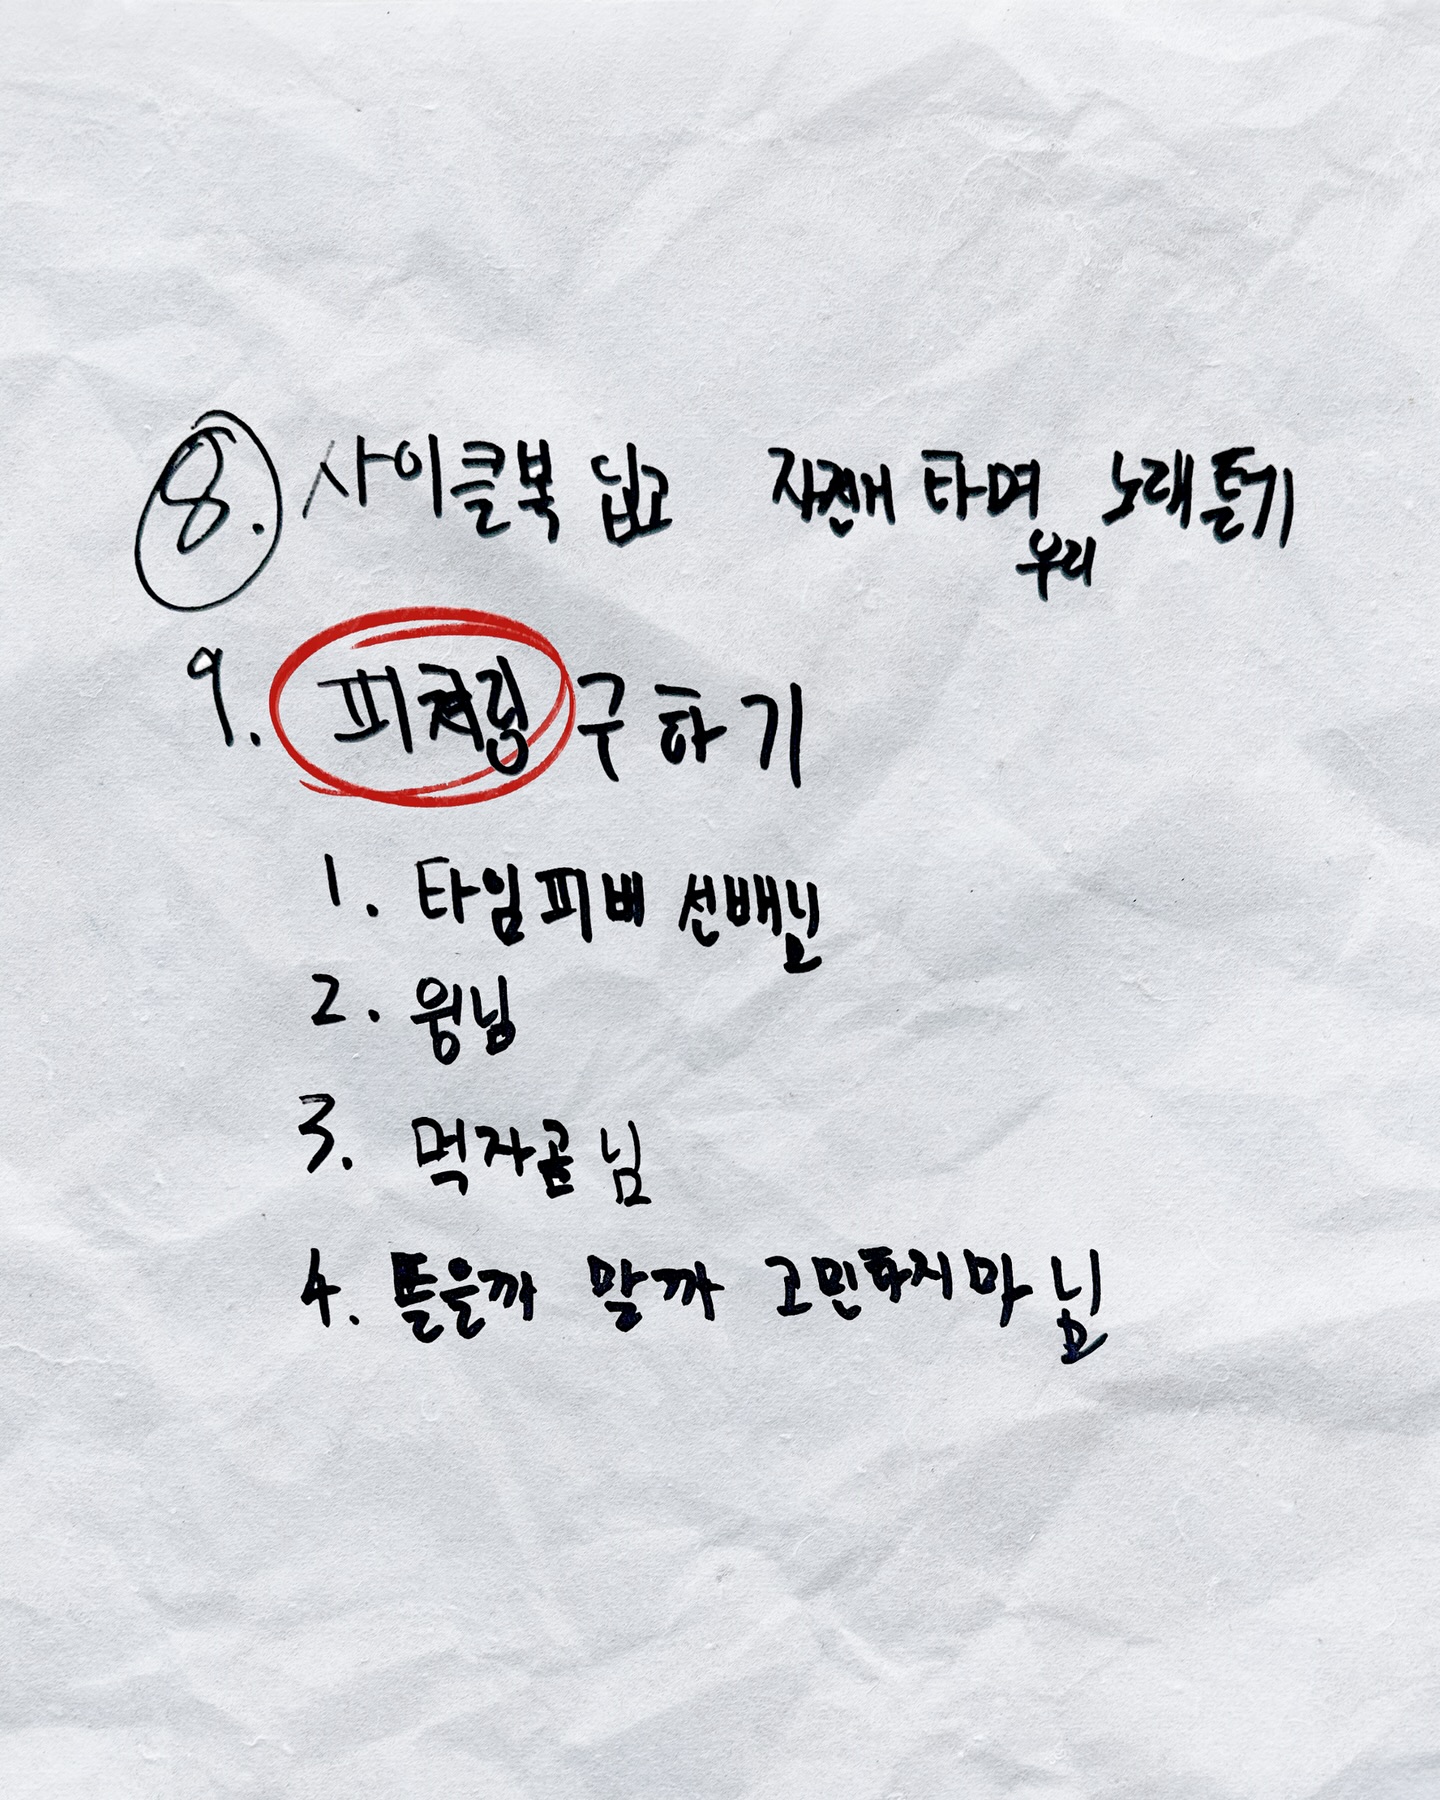 8. 사이클복 입고 자전거 타며 우리 노래 틀기
9. 피쳐링 구하기
1. 타임피버 선배님
2. 윙님
3. 먹자골 님
4. 뜰을까 말까 고민하지마 님